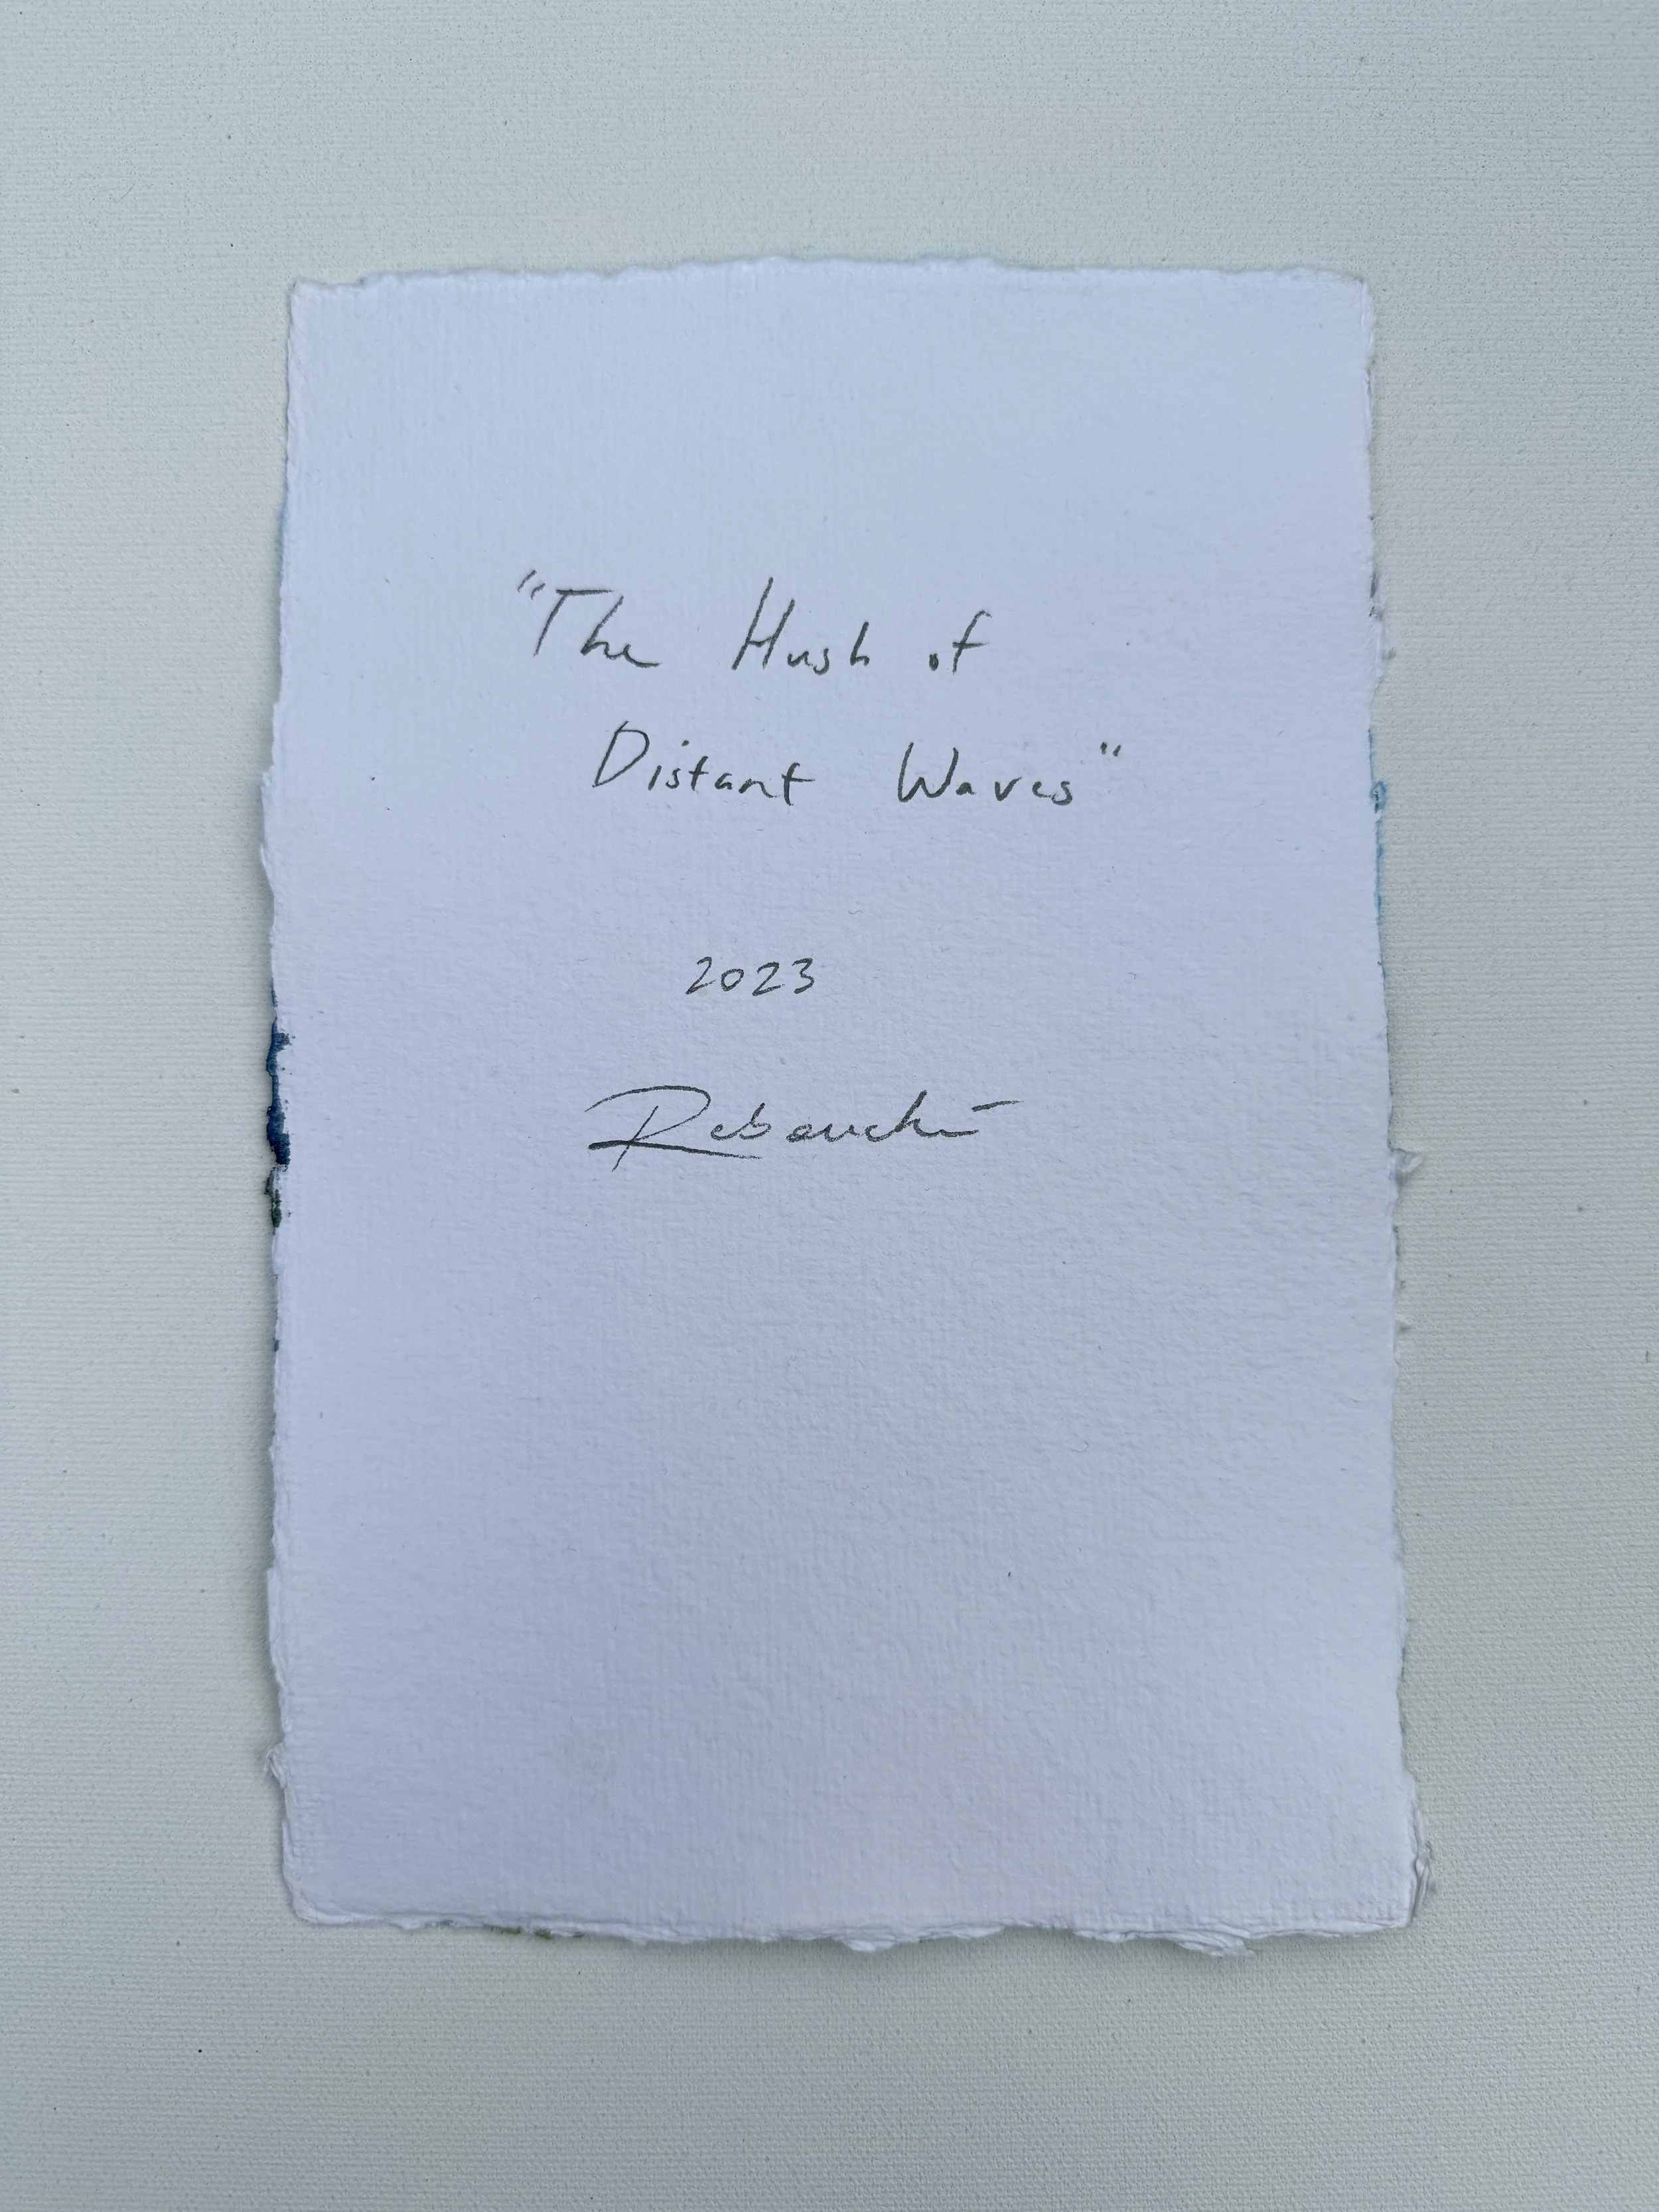 "The Hush of
Distant Waves"
2023